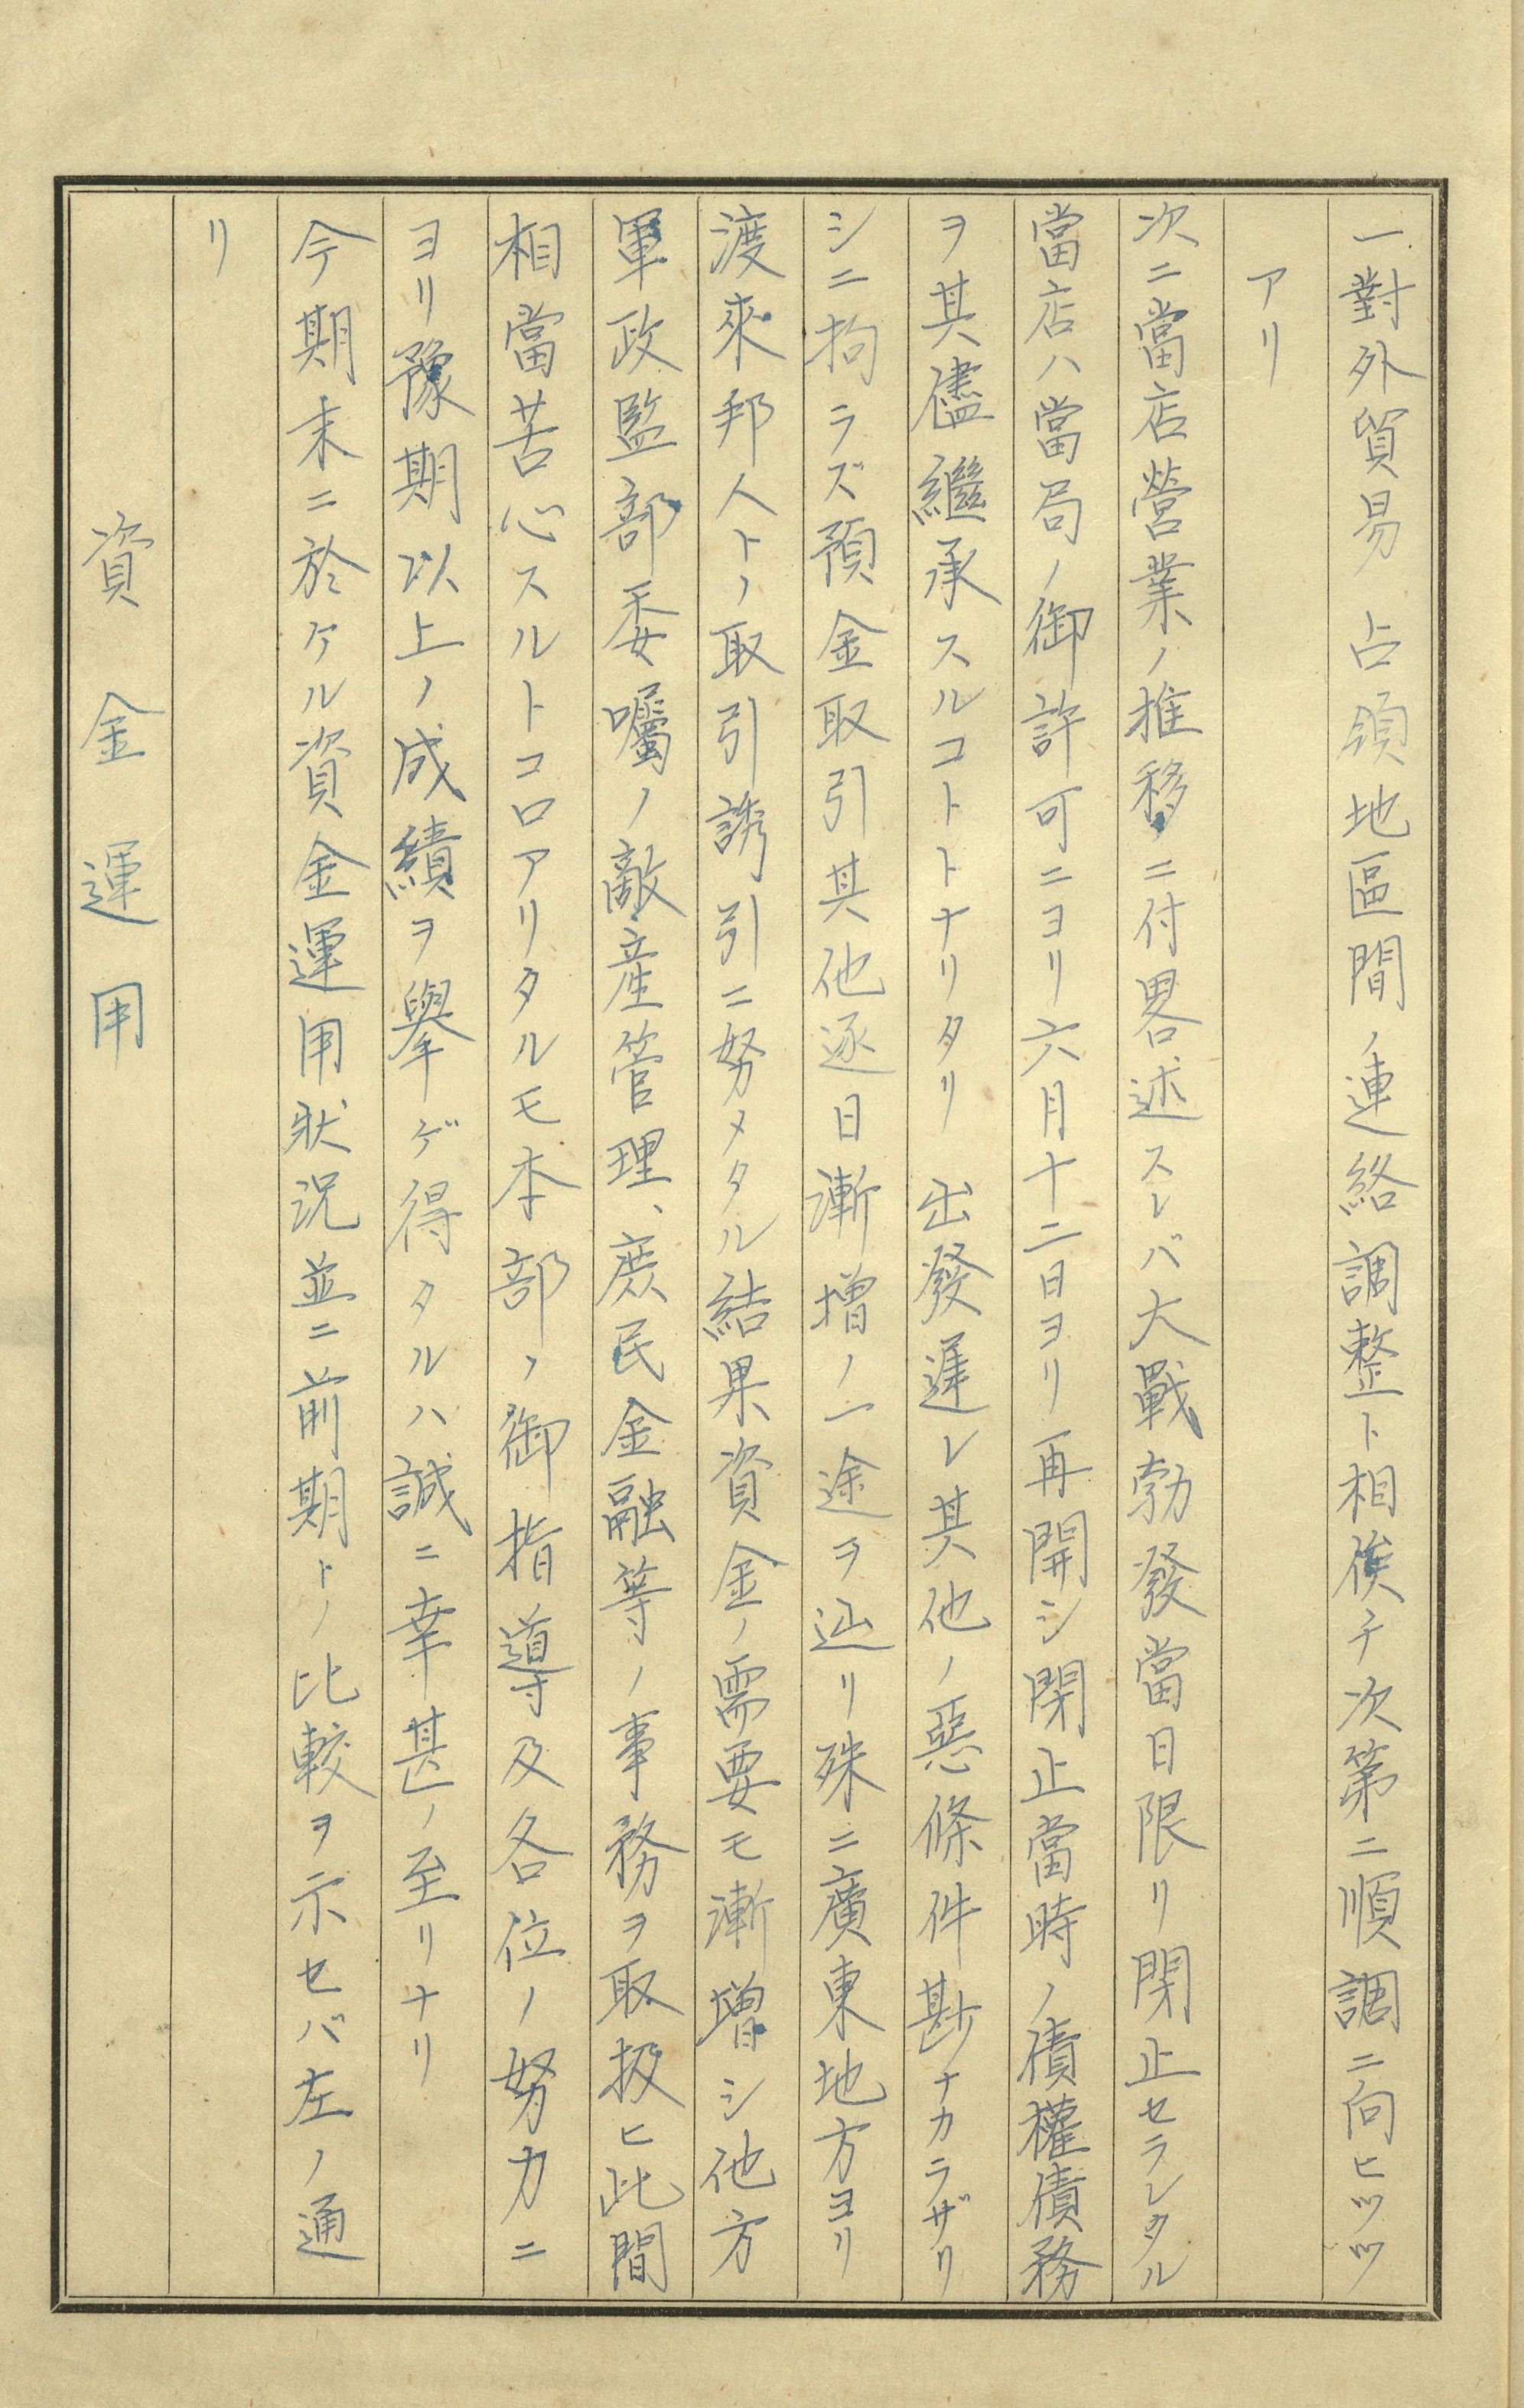 一對外貿易 占領地區間ノ連絡調整ト相俟チ次第ニ順調ニ向ヒツツ
アリ
次ニ當店營業ノ推移ニ付畧述スレバ大戰勃發當日限リ閉止セラレタル
當店ハ當局ノ御許可ニヨリ六月十二日ヨリ再開シ閉止當時ノ債權債務
ヲ其儘繼承スルコトトナリタリ 出發遲レ其他ノ惡條件尠ナカラザリ
シニ拘ラズ預金取引其他逐日漸增ノ一途ヲ辿リ殊ニ廣東地方ヨリ
渡來邦人トノ取引誘引ニ努メタル結果資金ノ需要モ漸增シ他方
軍政監部委囑ノ敵產管理、庶民金融等ノ事務ヲ取扱ヒ此間
相當苦心スルトコロアリタルモ本部ノ御指導及各位ノ努力ニ
ヨリ豫期以上ノ成績ヲ擧ゲ得タルハ誠ニ幸甚ノ至リナリ
今期末ニ於ケル資金運用狀況並ニ前期トノ比較ヲ示セバ左ノ通
リ
資金運用